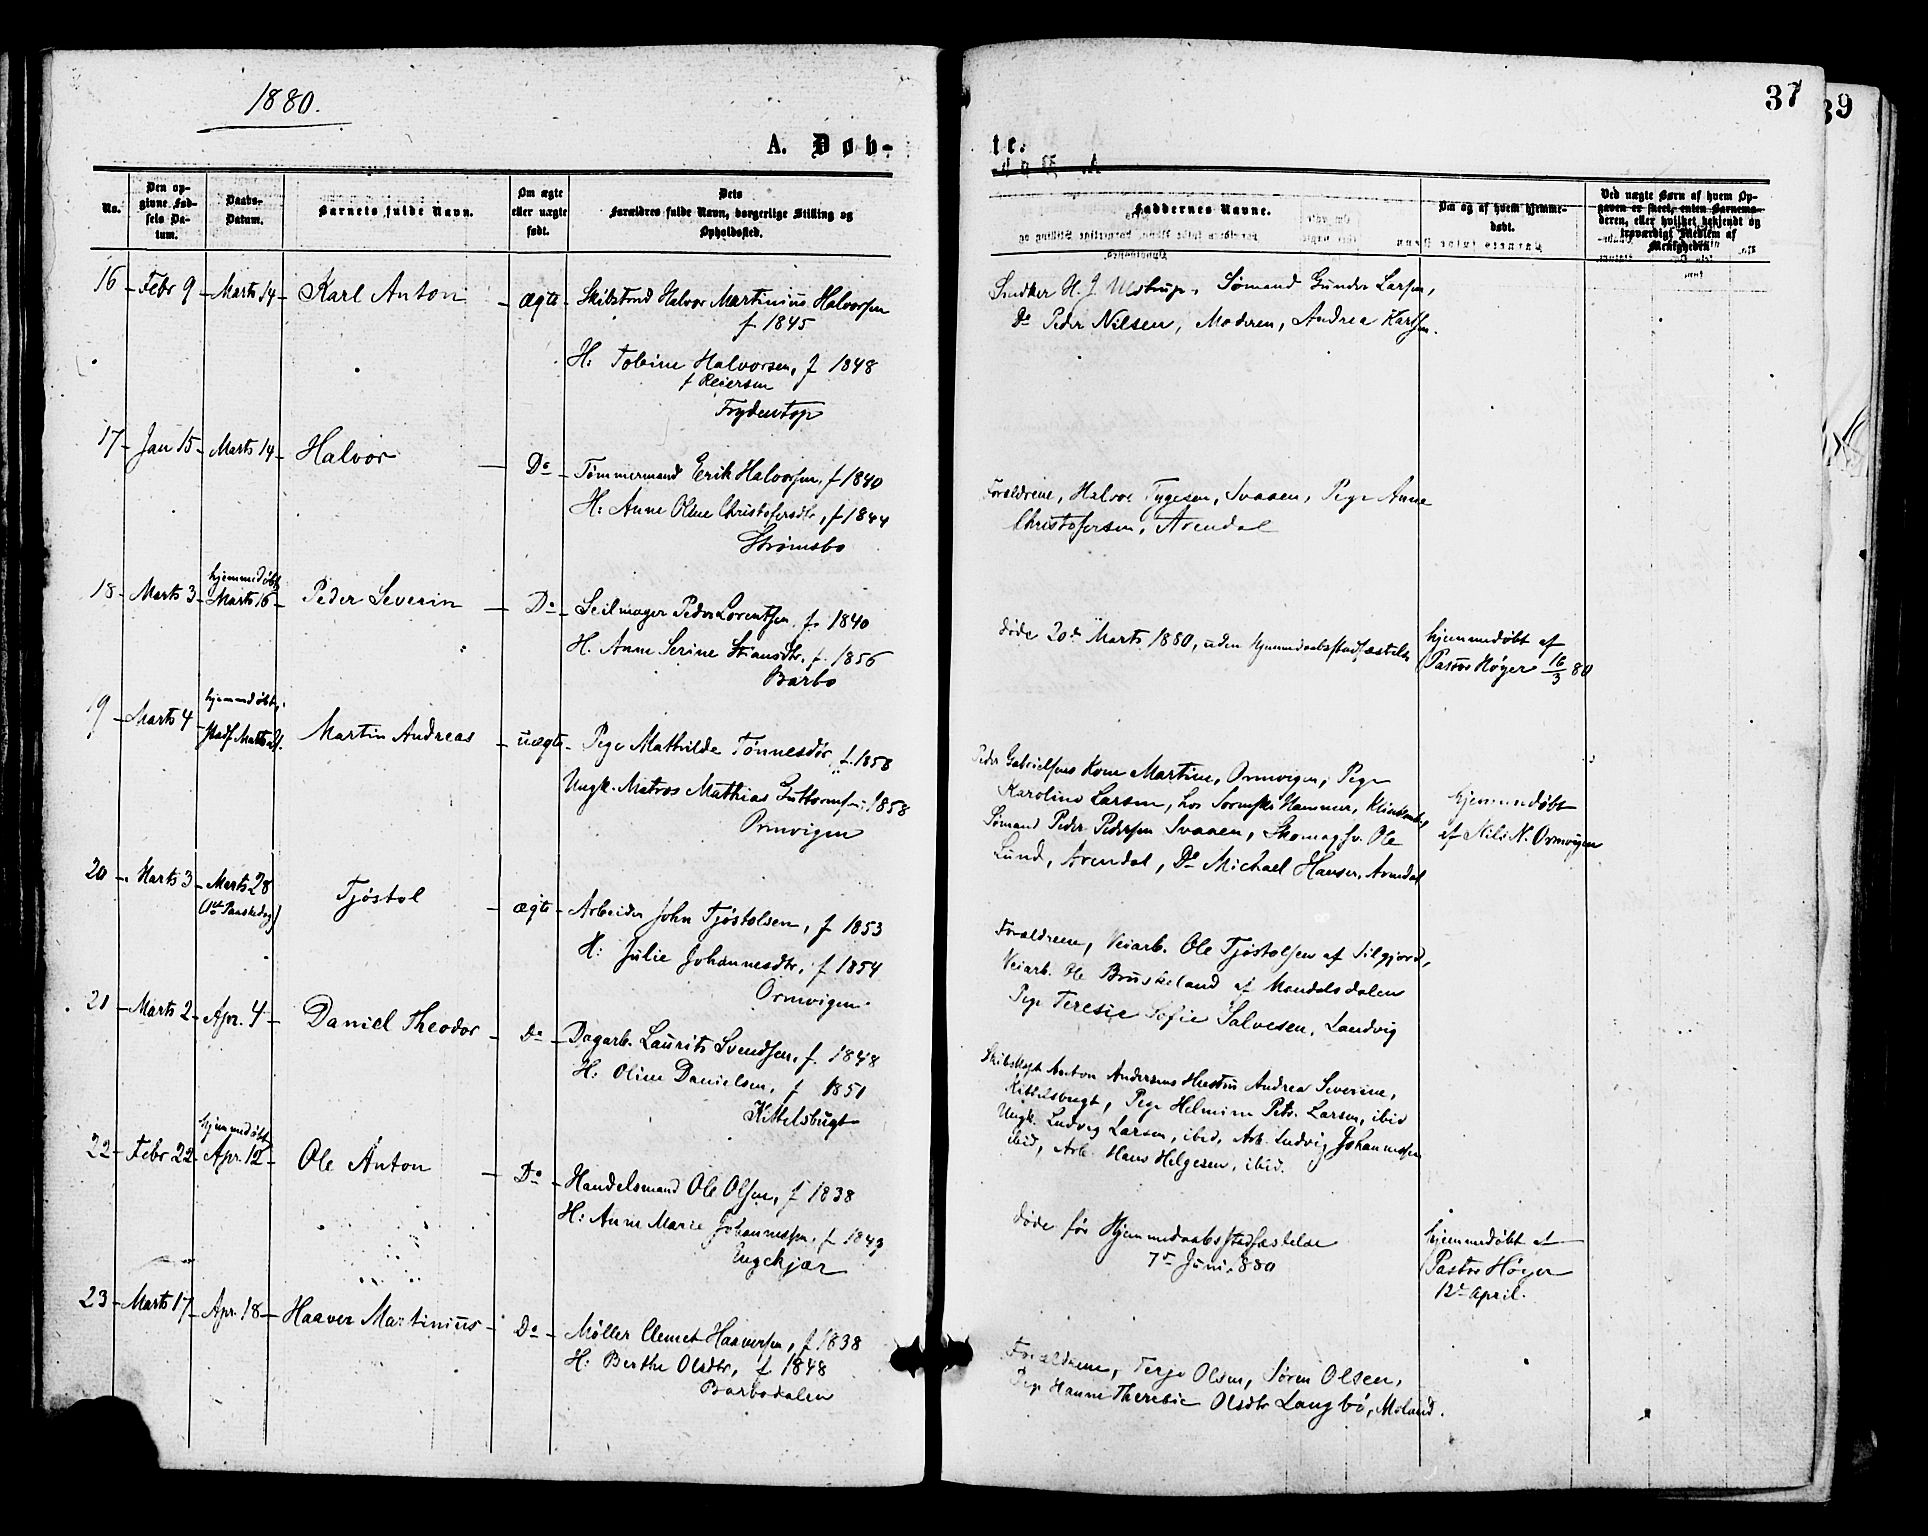 1880.
37
39
A. Døb-
te.
No.
Den op-
givne Fød-
sels Da-
tum.
Daabs-
Datum.
Barnets fulde Navn.
Om ægte
eller uægte
født.
Dets
Forældres fulde Navn, borgerlige Stilling og
Opholdssted.
Faddernes Navne.
Om og af hvem hjemme-
døbt.
Ved uægte Børn af hvem Op-
gaven er skeet, enten Barnemo-
deren, eller hvilket bekjendt og
troværdigt Medlem af
Menigheden
16 - Febr 9 - Marts 14 - Karl Anton - ægte - Skibstmd Halvor Martinius Halvorsen
f 1845
H: Tobine Halvorsen, f 1848
f Reiersen
Frydentop
Snedker H. J. Ulstrup, Sømand Gunder Larsen,
Do Peder Nilsen, Moderen, Andrea Karlsen.
17 - Jan 15 - Marts 14 - Halvor - Do - Tømmermand Erik Halvorsen, f 1840
H: Anne Oline Christofersdtr, f 1844
Strømsbo
Forældrene, Halvor Tygesen, Svaaen, Pige Anne
Christofersen, Arendal
18 - Marts 3 - hjemmedøbt
Marts 16 - Peder Severin - Do - Seilmager Peder Lorentsen, f. 1840
H. Anne Serine Stiansdtr, f. 1856
Barbo
døde 20de Marts 1880, uden Hjemmedaabsstadfæstelse
hjemmedøbt af
Pastor Høyer 16/3 80
19 - Marts 4 - hjemmedøbt,
Stadf. Marts - Martin Andreas - uægte - Pige Mathilde Tønnesdtr, f. 1858
Ungk. Matros Mathias Guttormsen: 1858
Ormvigen
Peder Gabrielsens Kone Martine, Ormvigen, Pige
Karoline Larsen, hos Hammer,
Sømand Peder Pedersen Svaaen, Skomagsv. Ole
Lund, Arendal, Do Michael Hansen, Arendal
hjemmedøbt
af Nils N. Ormvigen
20 - Marts 3 - Marts 28
(1ste Paaskedag) - Tjøstol - ægte - Arbeider John Tjøstolsen, f 1853
H: Julie Johannesdtr, f 1854
Ormvigen
Forældrene, Veiarb. Ole Tjøstolsen af Silgjord,
Veiarb. Ole Bruskeland af Mandalsdalen
Pige Teresie Sofie Salvesen, Landvig
21 - Marts 2 - Apr. 4 - Daniel Theodor - Do - Dagarb. Laurits Svendsen, f. 1848
H: Oline Danielsen, f 1851
Kittelsbugt
Skibskapt Anton Andersens Hustru Andrea Severine,
Kittelsbugt, Pige Helmine Petr. Larsen, ibid
Ungk. Ludvig Larsen, ibid, Arb. Ludvig Johannessen
ibid, Arb. Hans Helgesen, ibid.
22 - Febr 22 - hjemmedøbt
Apr. 12 - Ole Anton - Do - Handelsmand Ole Olsen, f 1838
H: Anne Marie Johannessen, f 1843
Ungekjær
døde før Hjemmedaabsstadfæstelse
7de Juni 1880
hjemmedøbt af
Pastor Høyer
12te April.
23 - Marts 17 - Apr. 18 - Haaver Martinius - Do - Møller Clemet Haaversen, f 1838
H: Berthe Olsdtr, f 1848
Barbodalen
Forældrene, Terje Olsen, Søren Olsen,
Pige Hanne Theresie Olsdtr Langbø, Moland.